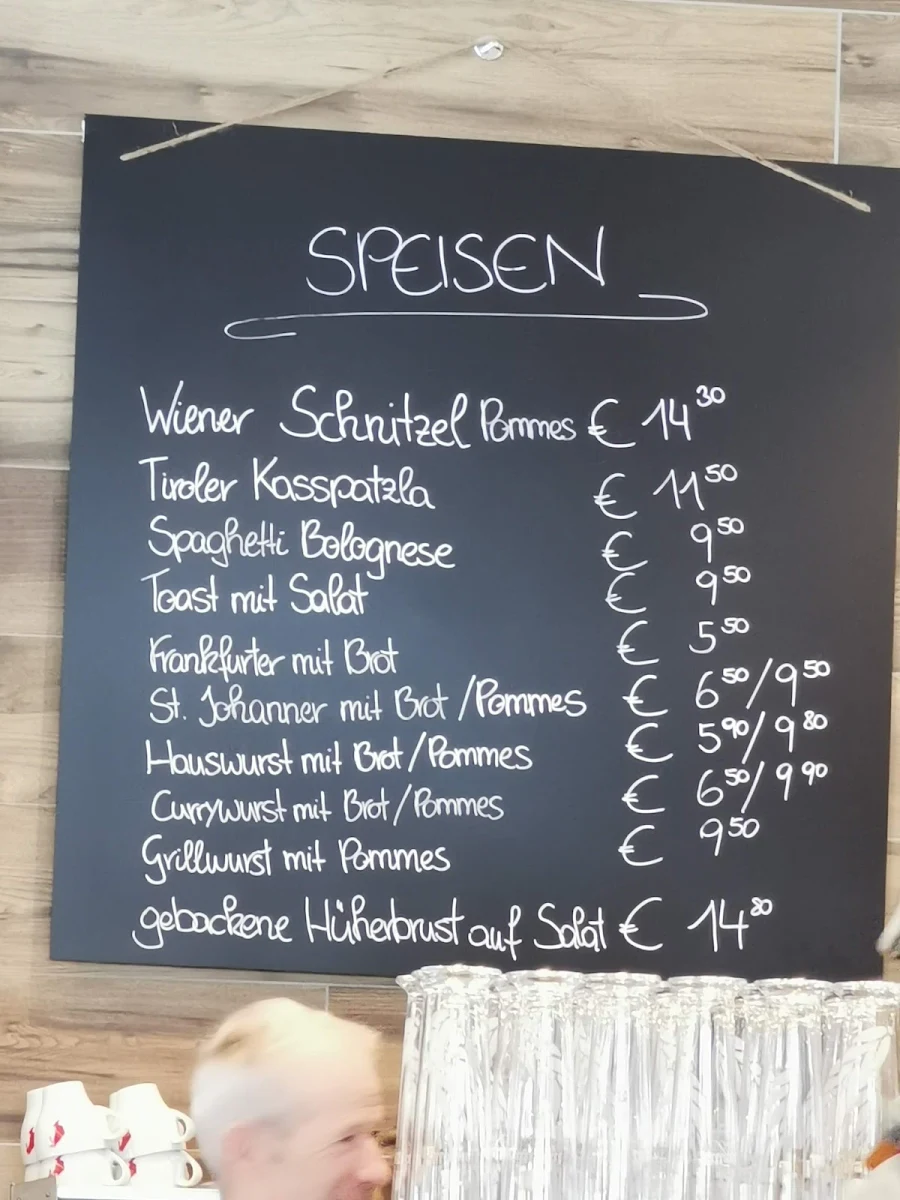 SPEISEN
Wiener Schnitzel Pommes € 14 30
Tiroler Kasspatzla € 11 50
Spaghetti Bolognese € 9 50
Toast mit Salat € 9 50
Frankfurter mit Brot € 5 50
St. Johanner mit Brot / Pommes € 6 50 / 9 50
Hauswurst mit Brot / Pommes € 5 90 / 9 80
Currywurst mit Brot / Pommes € 6 50 / 9 90
Grillwurst mit Pommes € 9 50
gebackene Hüherbrust auf Salat € 14 80